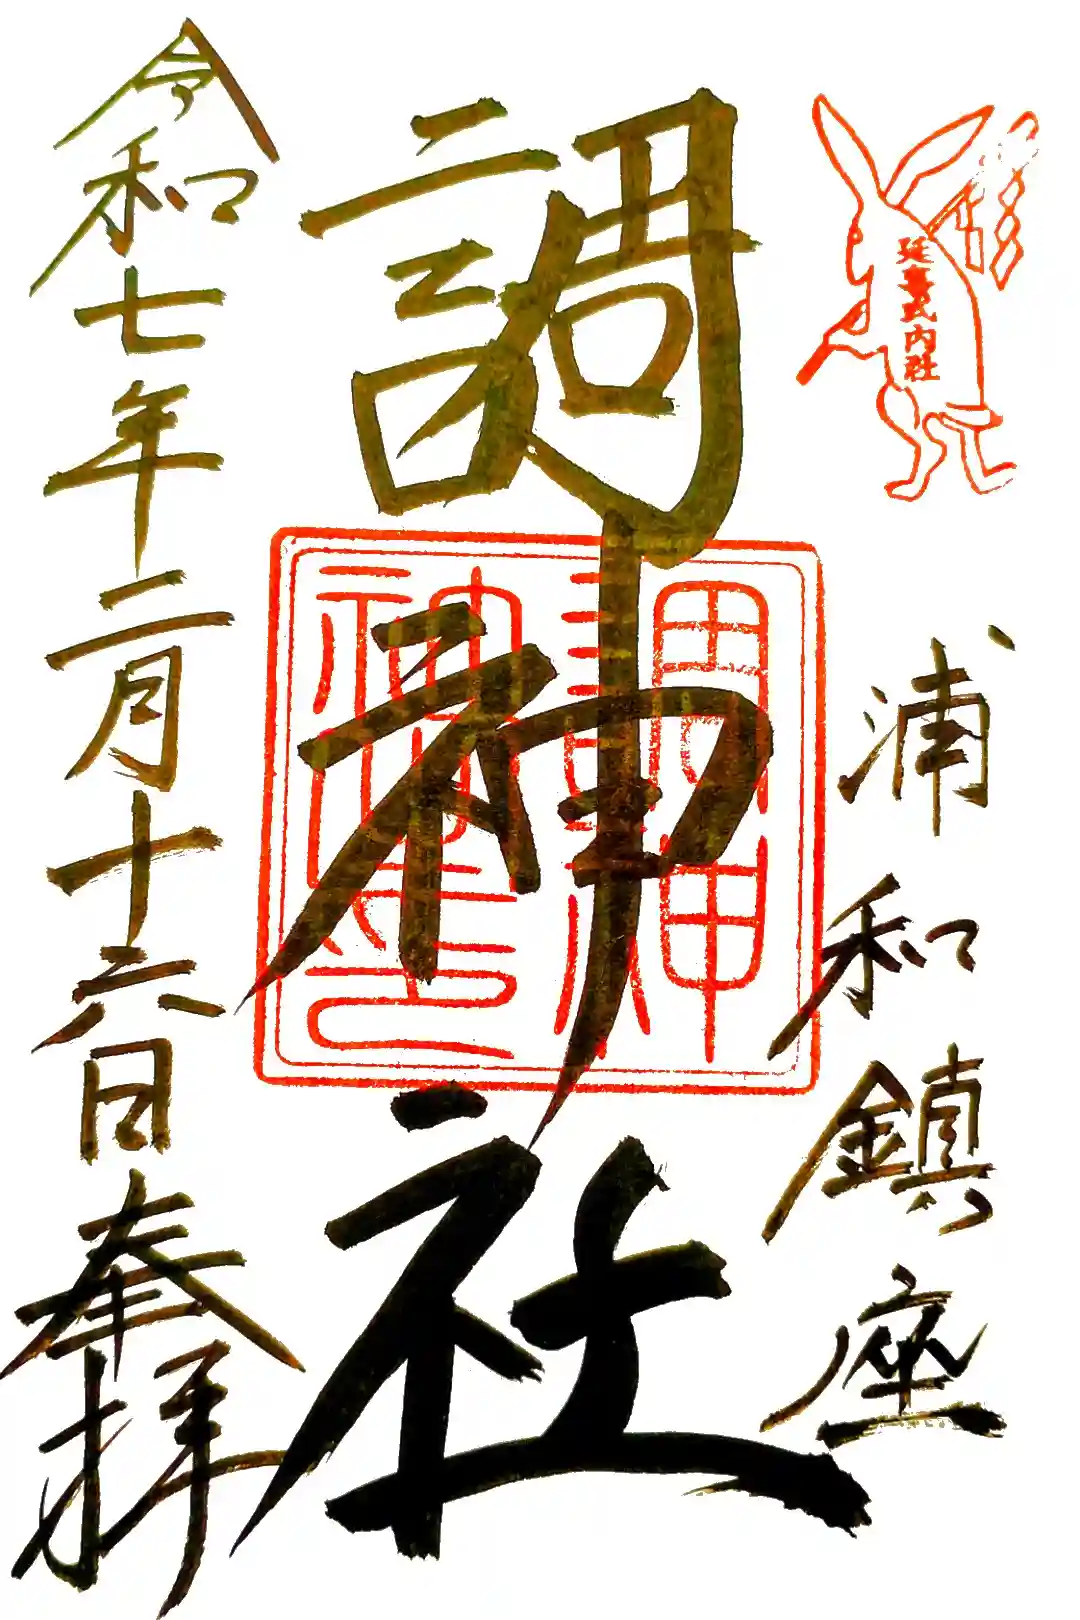 延喜式内社
浦和鎮座
調神社
調神社神璽
令和七年二月十六日奉拝